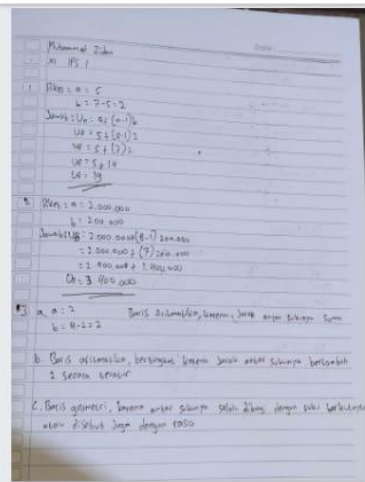 Muhammat Zidan
XI IPS 1
1 Dikes = a = 5
b = 7-5 = 2
Jawab = Un = a + (n-1)b
U8 = 5 + (8-1)2
U8 = 5 + (7)2
U8 = 5 + 14
U8 = 19
2 Dikes = a = 2.000.000
b = 200.000
Jawab = U8 = 2.000.000 + (8-1) 200.000
= 2.000.000 + (7) 200.000
= 2.000.000 + 1.400.000
U8 = 3 400.000
3 a. a = 2
b = 4-2 = 2
Baris aritmatika, karena, jarak antar sukunya sama
b. Baris aritmatika, bertingkat karena jarak antar sukunya bertambah
2 secara teratur
c. Baris geometri, karena antar sukunya selalu dibagi dengan suku berikutnya
atau disebut juga dengan rasio